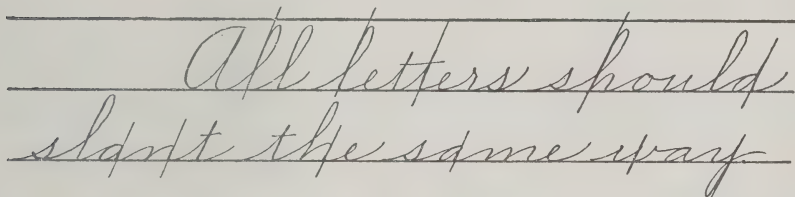 All letters should
slant the same way.